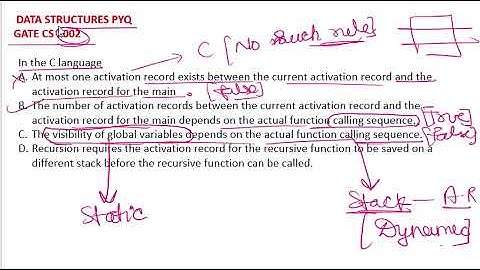 DATA STRUCTURES PYQ
GATE CS 2002
C [No such rule]
In the C language
A. At most one activation record exists between the current activation record and the
activation record for the main. [false]
B. The number of activation records between the current activation record and the
activation record for the main depends on the actual function calling sequence. [True]
C. The visibility of global variables depends on the actual function calling sequence. [false]
D. Recursion requires the activation record for the recursive function to be saved on a
different stack before the recursive function can be called.
Static
Stack — A.R
[Dynamic]